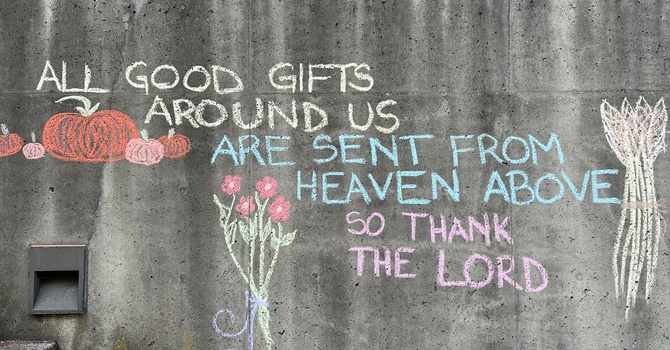 ALL GOOD GIFTS
AROUND US
ARE SENT FROM
HEAVEN ABOVE
SO THANK
THE LORD